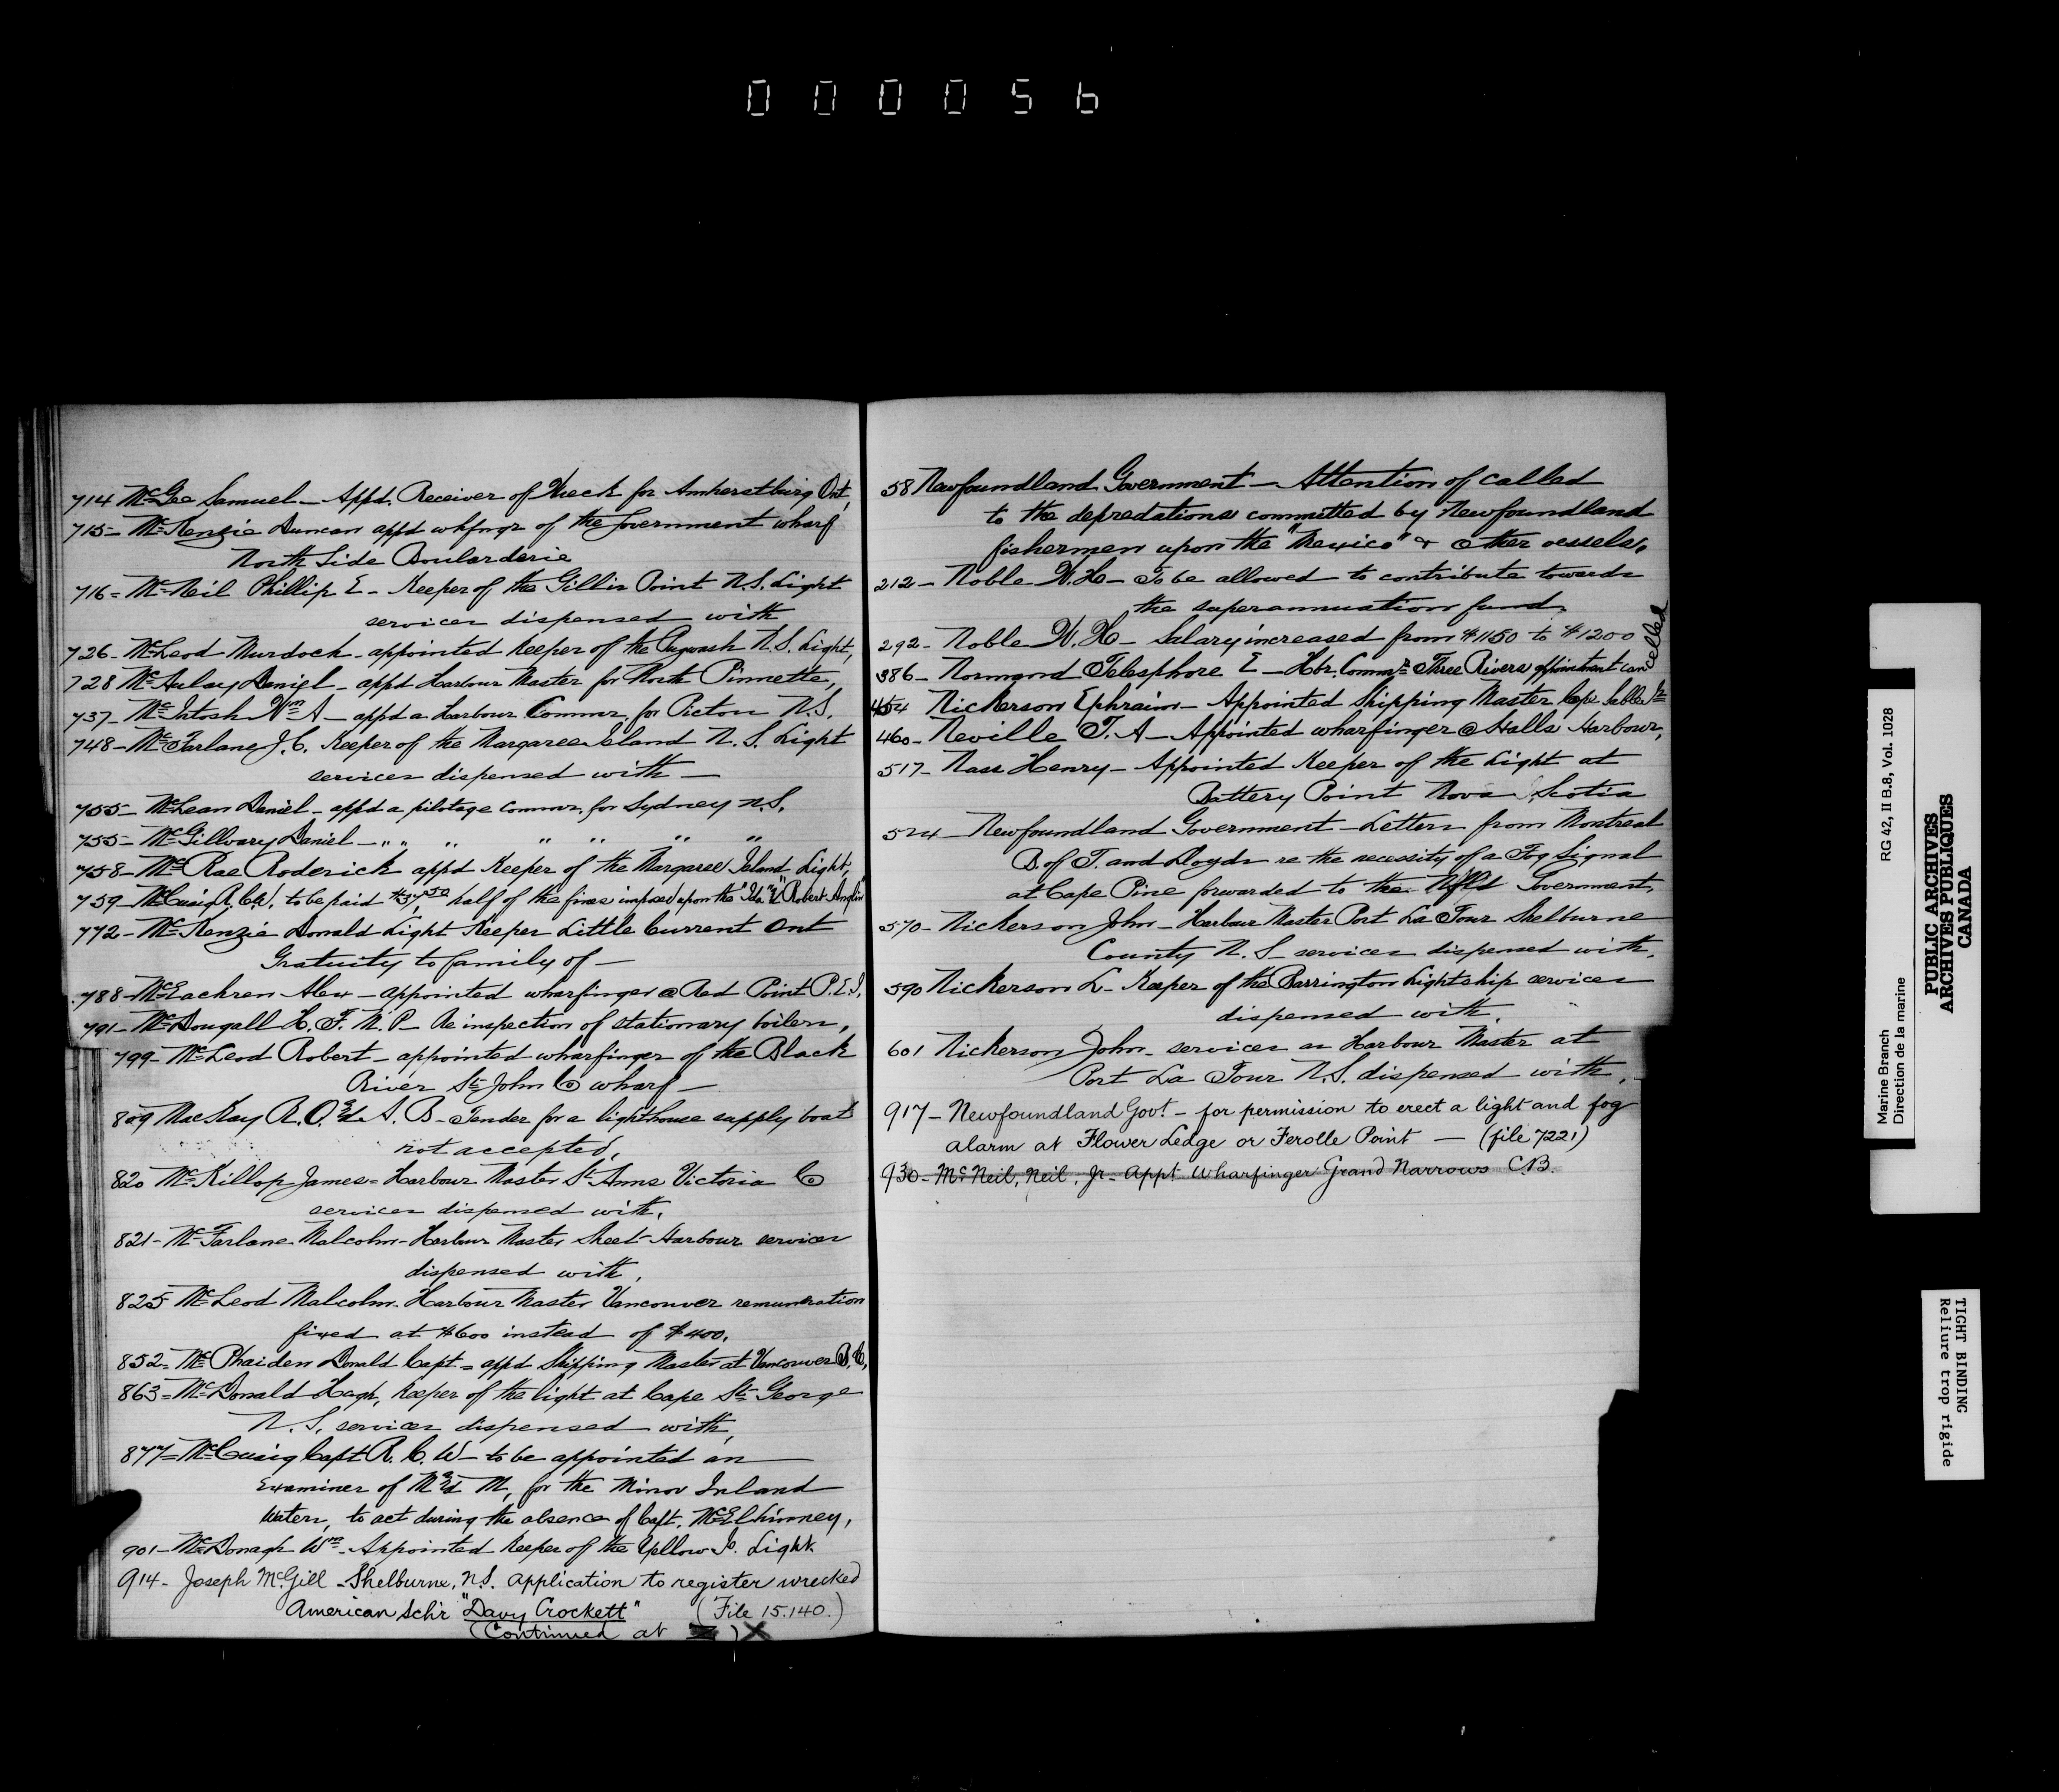 000056
714 McGee Samuel - Appd. Receiver of Wreck for Amherstburg Ont,
715 - McKenzie Duncan appd whfngr of the Government wharf
North Side Boularderie
716 - McNeil Phillip E - Keeper of the Gillis Point N.S. Light
services dispensed with
726 - McLeod Murdoch - appointed keeper of the Pugwash N.S. Light,
728 McAulay Daniel - appd Harbour Master for North Pinnette,
737 - McIntosh Wm A - appd a Harbour Commr, for Pictou N.S.
748 - McFarlane J.C. Keeper of the Margaree Island N.S. Light
services dispensed with -
755 - McLean Daniel - appd a pilotage commr. for Sydney N.S.
755 - McGillvary Daniel - " " " " " " "
758 - McRae Roderick appd Keeper of the Margaree Island Light,
759 - McCuaig R.C.W. to be paid $37.50 half of the fines imposed upon the "Ida" & "Robert Anglin"
772 - McKenzie Donald Light Keeper Little Current Ont
Gratuity to family of -
788 - McEachren Alex - appointed wharfinger @ Red Point P.E.I.
791 - McDougall H.F. M.P. Re inspection of stationary boilers,
799 - McLeod Robert - appointed wharfinger of the Black
River St John Co wharf -
809 MacKay R.O. & A.B - Tender for a lighthouse supply boat
not accepted,
820 McKillop James - Harbour Master St Anns Victoria Co
services dispensed with.
821 - McFarlane Malcolm - Harbour Master Sheet Harbour services
dispensed with.
825 McLeod Malcolm. Harbour Master Vancouver remuneration
fixed at $600 instead of $400.
852 - McPhaiden Donald Capt - appd Shipping Master at Vancouver B.C,
863 - McDonald Hugh, keeper of the light at Cape St George
N.S. services dispensed with,
877 - McCuaig Capt R.C.W - to be appointed an
Examiner of M & M, for the Minor Inland
Waters, to act during the absence of Capt. McElhinney,
901 - McDonagh Wm - Appointed keeper of the Yellow Is. Light
914 - Joseph McGill - Shelburne, N.S. application to register wrecked
American Sch'r "Davy Crockett" (File 15.140.)
(Continued at ) X
58 Newfoundland Government - Attention of called
to the depredations committed by Newfoundland
fishermen upon the "Mexico" & other vessels.
212 - Noble W.H - To be allowed to contribute towards
the superannuation fund.
292 - Noble W.H - Salary increased from $1150 to $1200
386 - Normand Telesphore E - Hbr. Commr Three Rivers appointment cancelled
454 Nickerson Ephraim - Appointed Shipping Master Cape Sable Is
460 - Neville T.A - Appointed wharfinger @ Halls Harbour,
517 - Nass Henry - Appointed Keeper of the Light at
Battery Point Nova Scotia
524 - Newfoundland Government - Letters from Montreal
B. of T. and Lloyds re the necessity of a Fog Signal
at Cape Pine forwarded to the Nfld Government,
570 - Nickerson John - Harbour Master Port La Tour Shelburne
County N.S - services dispensed with.
590 Nickerson L - Keeper of the Barrington Lightship services
dispensed with.
601 Nickerson John - services as Harbour Master at
Port La Tour N.S. dispensed with.
917 - Newfoundland Govt. - for permission to erect a light and fog
alarm at Flower Ledge or Ferolle Point - (file 7221)
930 - McNeil, Neil, Jr - Appt Wharfinger Grand Narrows C.B.
Marine Branch RG 42, II B.8, Vol. 1028
Direction de la marine
PUBLIC ARCHIVES
ARCHIVES PUBLIQUES
CANADA
TIGHT BINDING
Reliure trop rigide